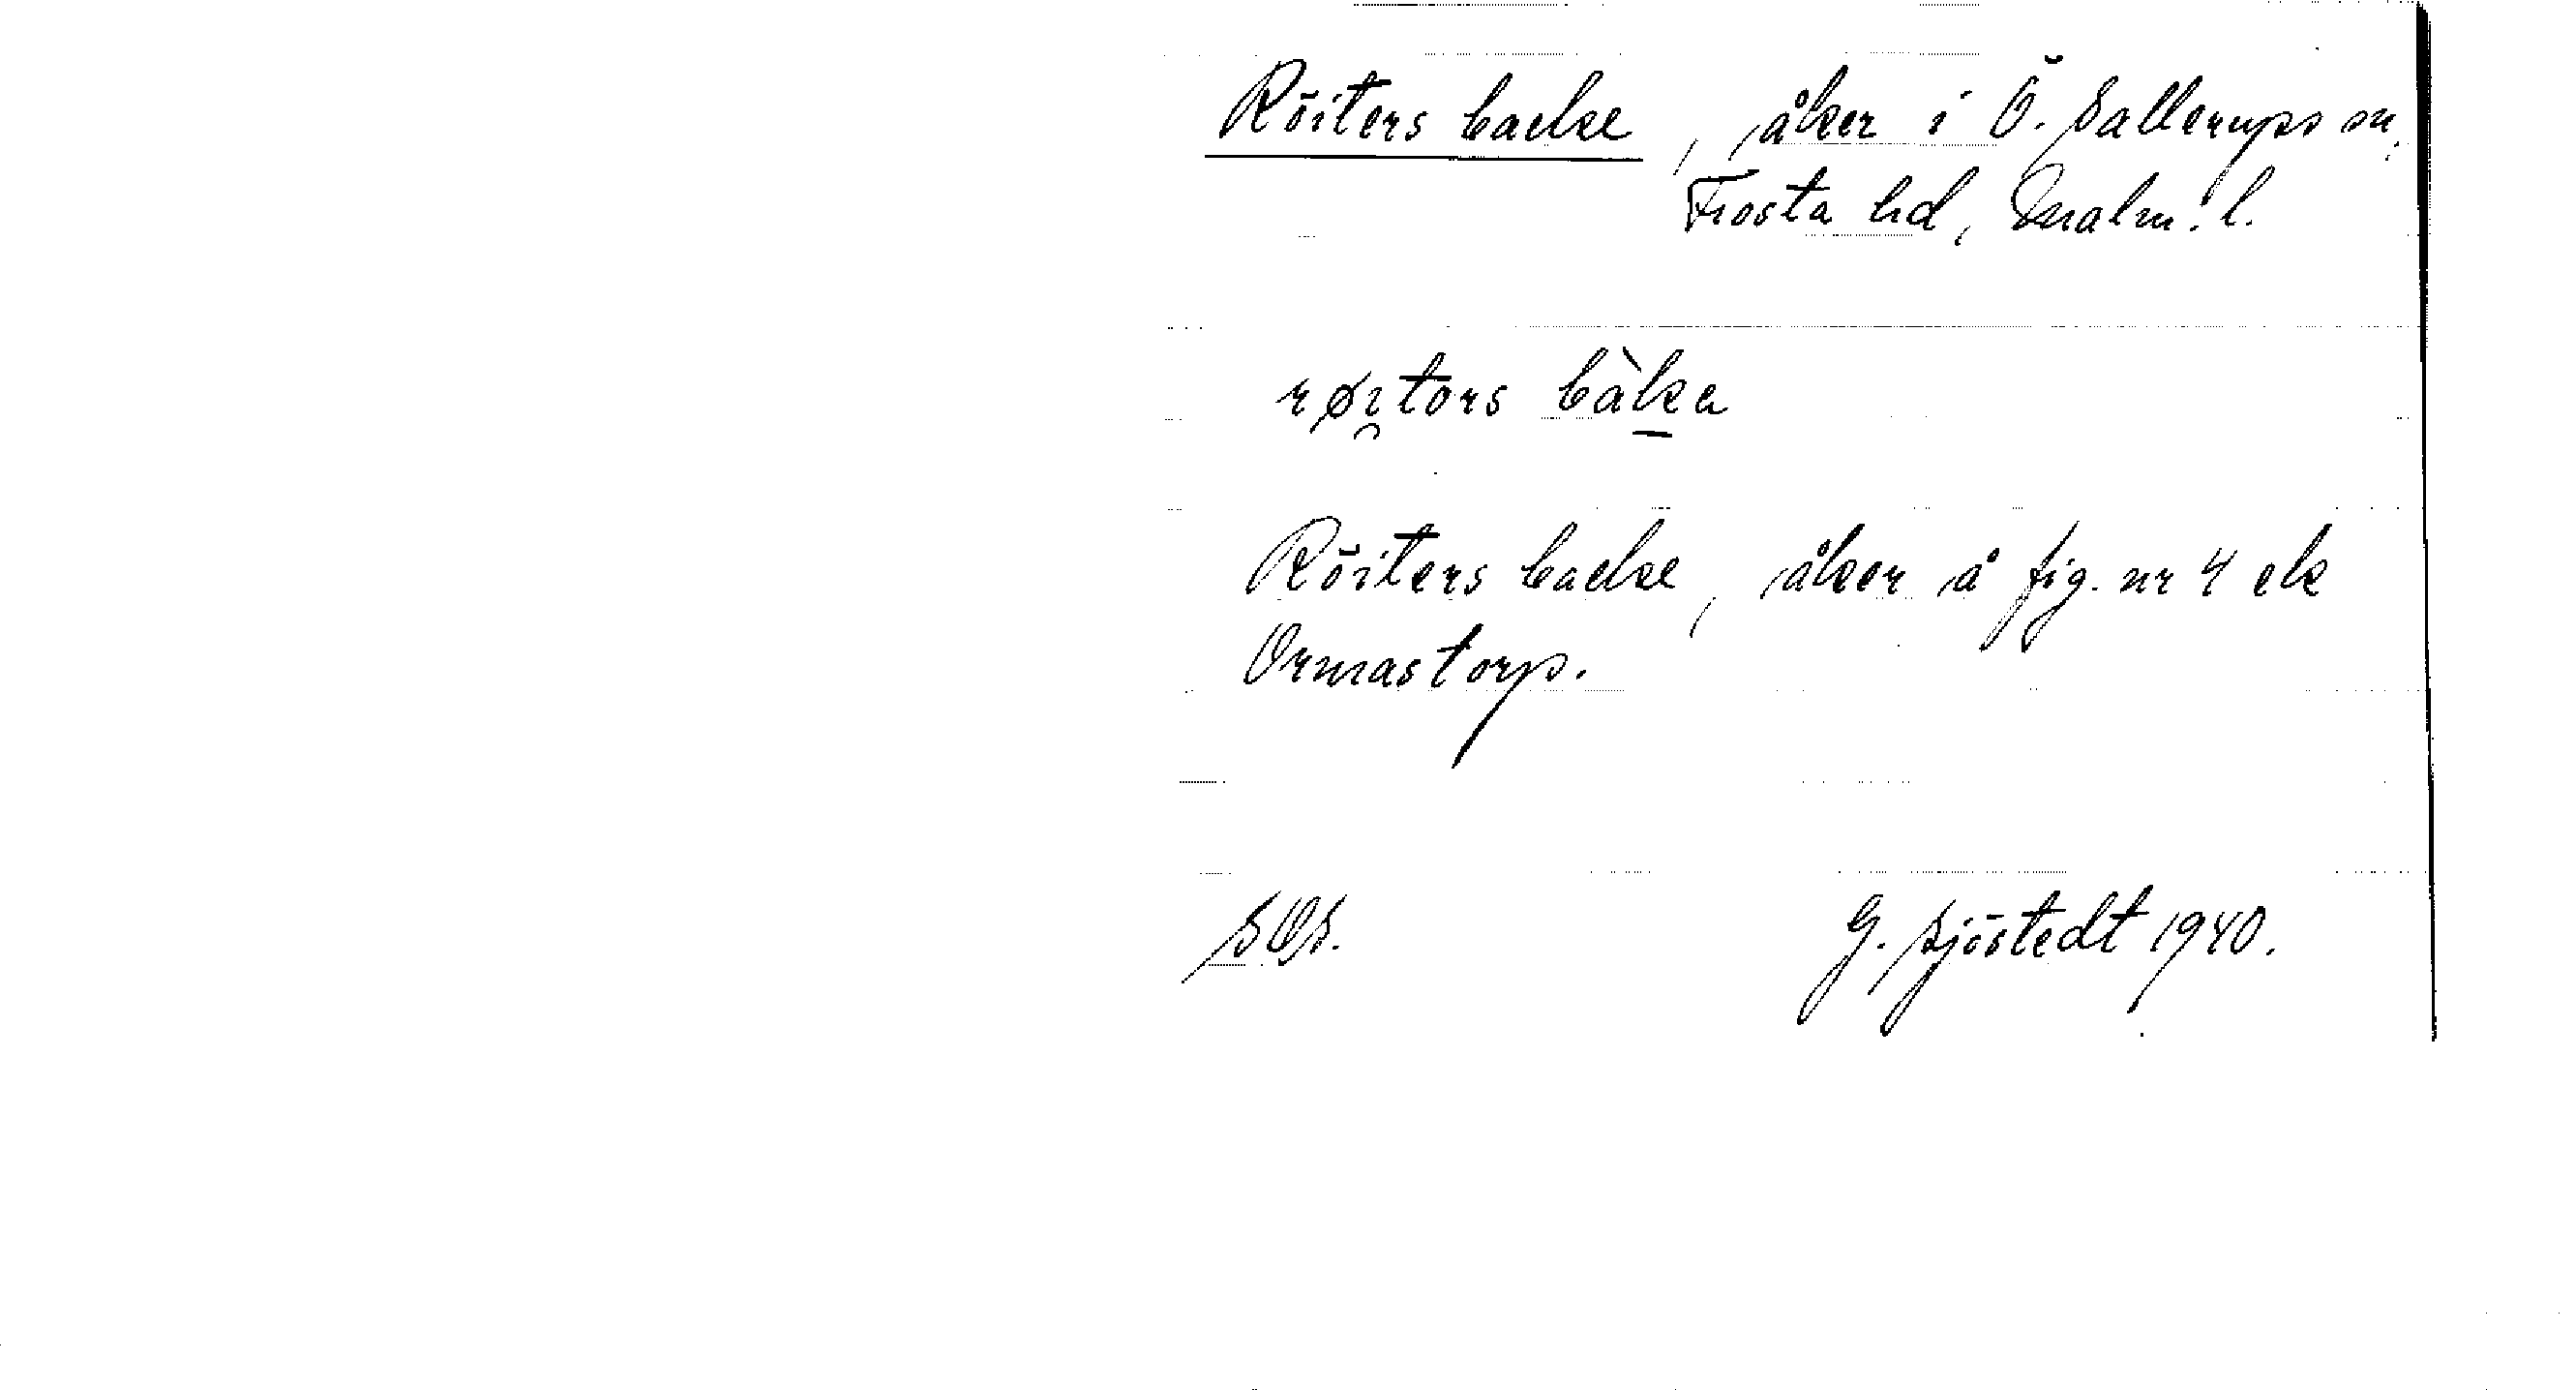 Röiters backe, åker i Ö. Sallerups sn,
Frosta hd, Malm. l.
røɪ̯tərs bàk̠a
Röiters backe, åker å fig. nr 4 ek
Ormastorp.
SOS.
G. Sjöstedt 1940.